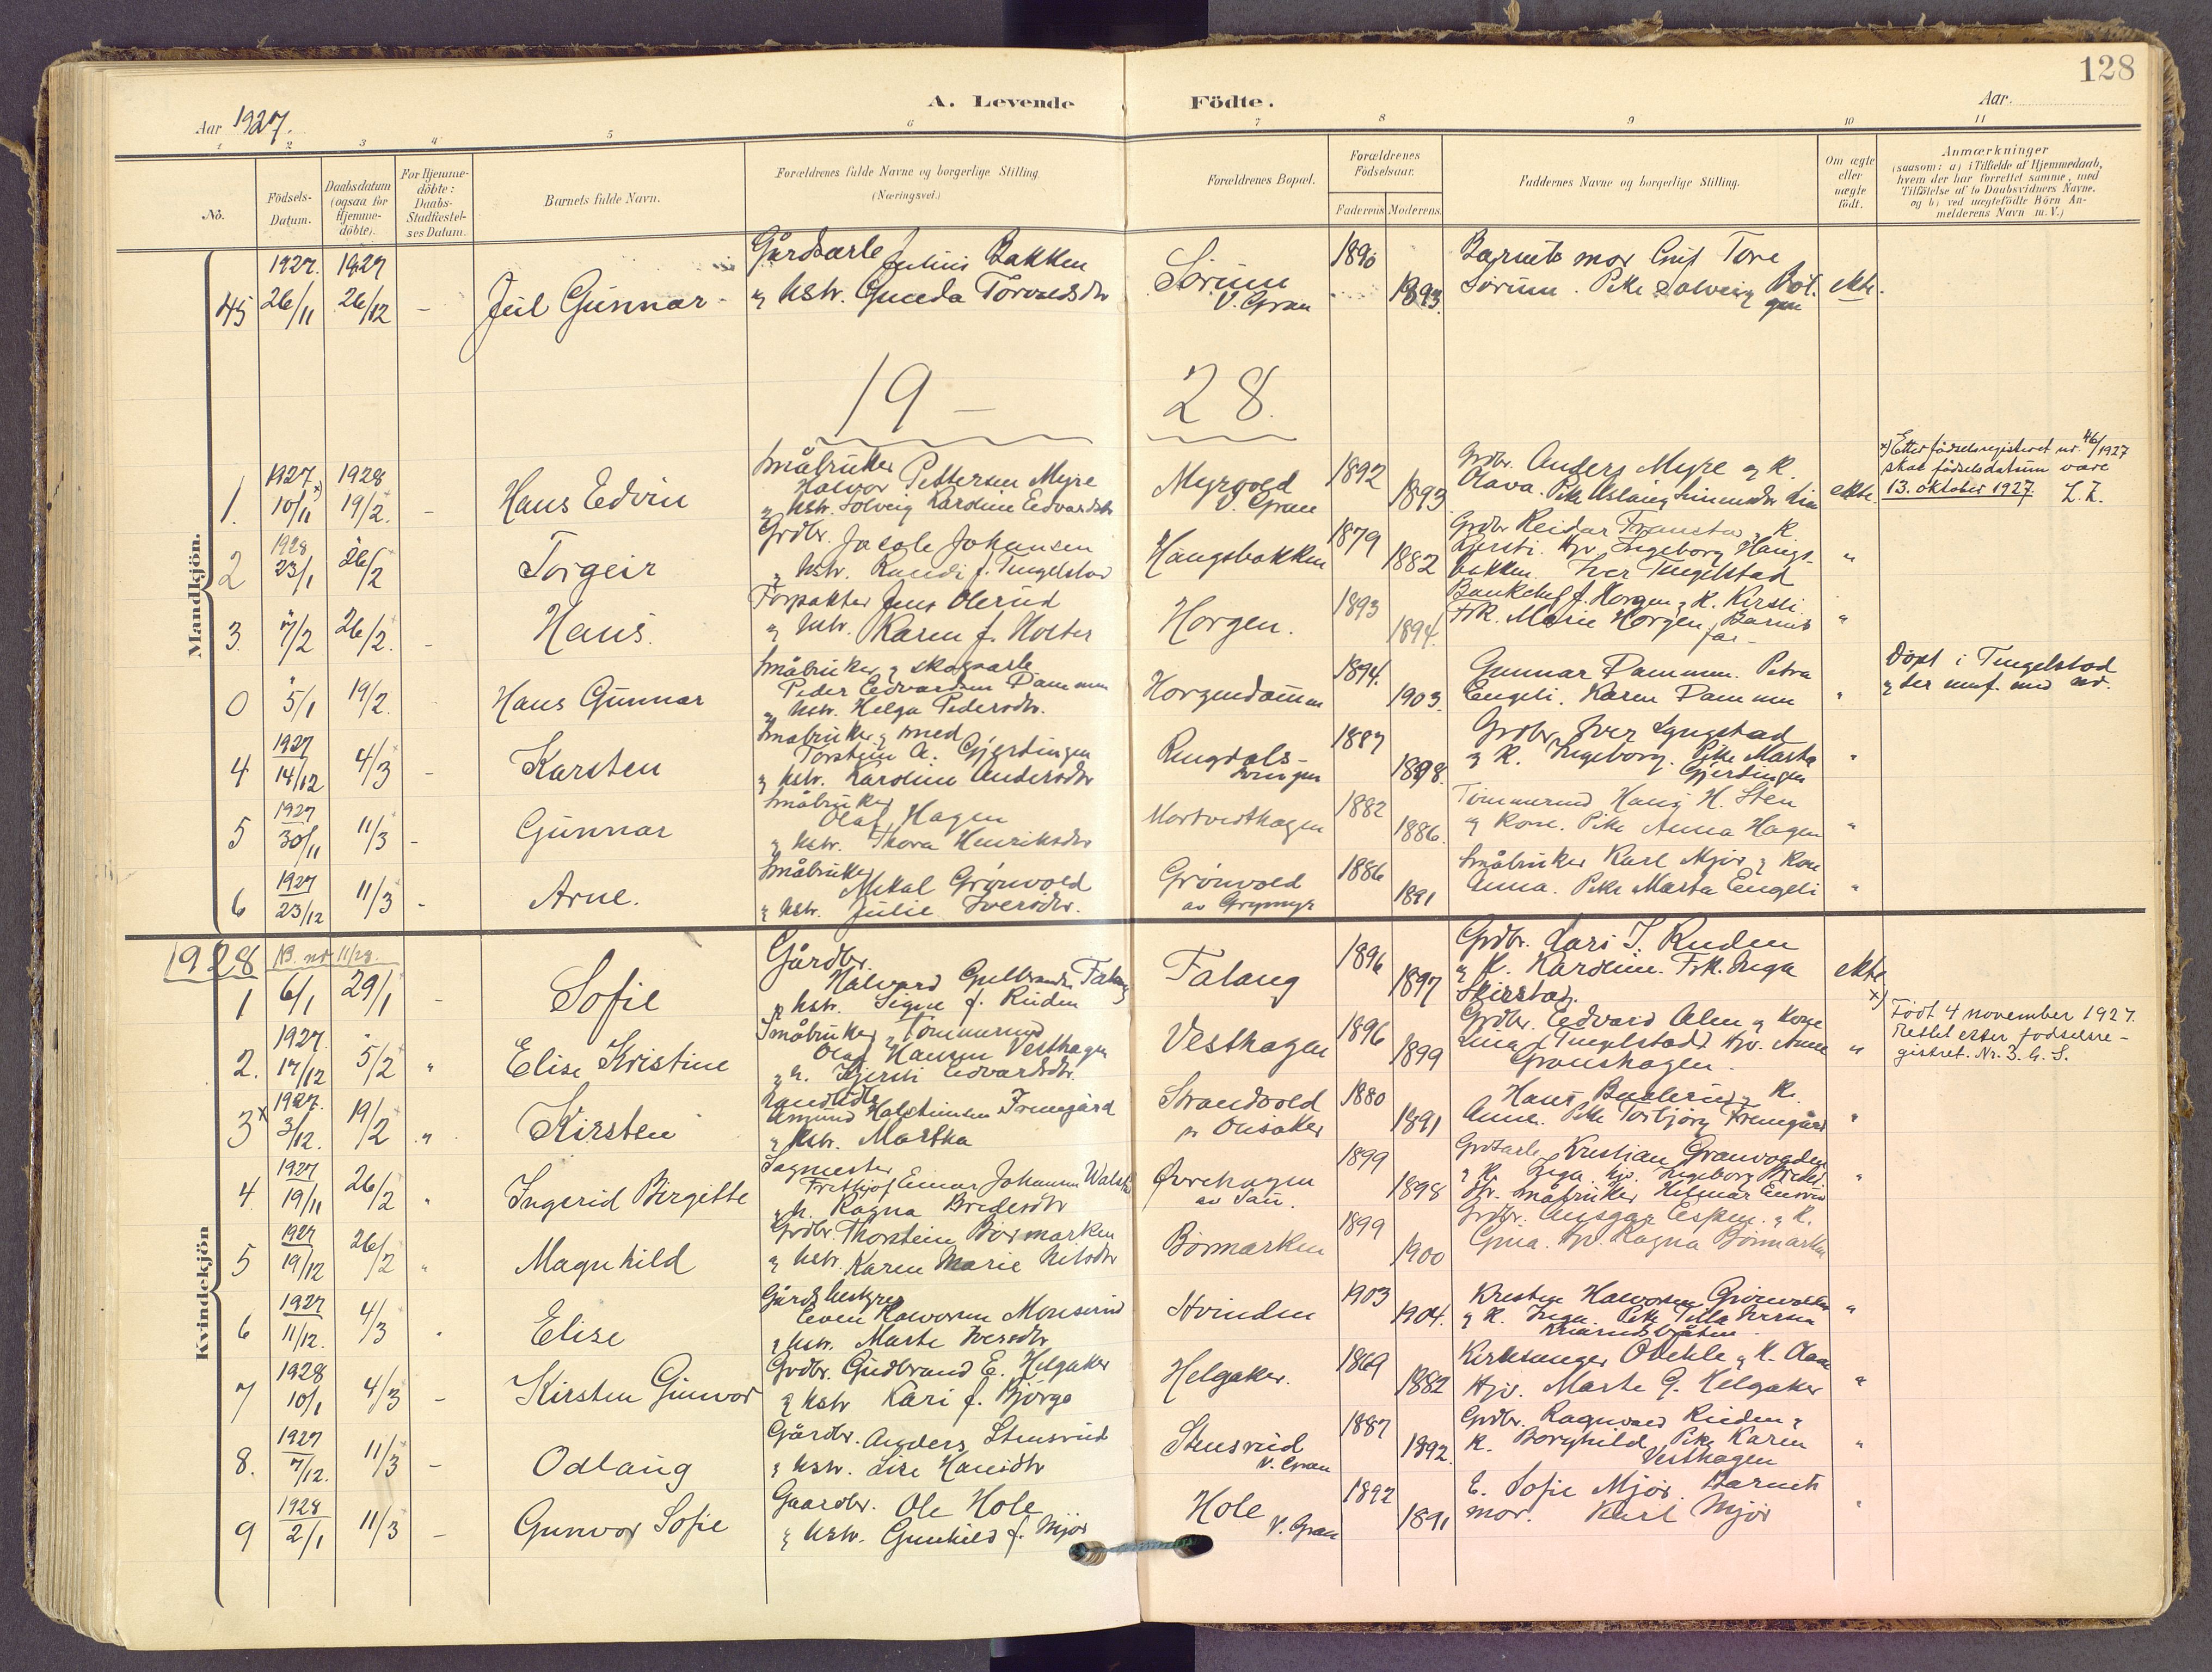 128
A. Levende Födte.
Aar 1927.
Aar.
1 2 3 4 5 6 7 8 9 10 11
Nö.
Födsels-Datum.
Daabsdatum (ogsaa for Hjemme-döbte).
For Hjemme-döbte: Daabs-Stadfæstel-ses Datum.
Barnets fulde Navn.
Forældrenes fulde Navne og borgerlige Stilling (Næringsvei.)
Forældrenes Bopæl.
Forældrenes Födselsaar.
Faderens Moderens.
Faddernes Navne og borgerlige Stilling.
Om ægte eller uægte födt.
Anmærkninger
(saasom: a) i Tilfælde af Hjemmedaab,
hvem der har forrettet samme, med
Tilföielse af to Daabsvidners Navne.
og b) ved uægtefödte Börn An-
melderens Navn m.V.)
Mandkjön.
45 1927. 26/11 1927 26/12 - Juil Gunnar - Gårdsarb. Julius Bakken
& kstr. Gunda Torvaldsdtr Sørum V. Gran 1890 1893. Barnets mor Tove
Sørum. Pike Solveig ekte.
19 - 28.
1. 1927 x) 10/11 1928 19/2. - Hans Edvin Småbruker Halvor Pettersen Myre
& kstr. Solveig Karoline Edvardsdtr Myrvold V. Gran 1892 1893 Grdbr. Anders Myre & K.
Olava. Pike Aslaug ekte.
x) Etter fødselsregisteret nr. 46/1927
skal fødselsdatum være
13. oktober 1927. L. Z.
2 1928 23/1 26/2 Torgeir Grdbr. Jacob Johansen
& kstr. Randi f. Tingelstad Haugsbakken 1879 1882 Grdbr Reidar & K.
Kjersti. Hjv. Ingeborg Haugs-
bakken. Iver Tingelstad "
3. 7/2 26/2. - Hans. Forpakter Jens Olerud
& kstr. Karen f. Holter Horgen. 1893 1894. Bankchef J. Horgen & K. Kirsti.
Frk. Marie Horgen. Barnets far - "
0 5/1 19/2. Hans Gunnar Småbruker & skogsarb.
Peder Edvardsen Dammen
& kstr. Helga Pedersdtr. Horgendammen 1894. 1903. Gunnar Dammen. Petra
Engeli. Karen Dammen "
Døpt i Tingelstad
4 1927 14/12 4/3 - Karsten Småbruker & smed
Torstein A. Gjerdingen
& kstr. Karoline Andersdtr Ringdals-svingen 1887 1898. Grdbr. Iver Lyngstad
& K. Ingeborg. Pike Marta
Gjerdingen "
5 1927 30/11 11/3 - Gunnar Småbruker
Olaf Hagen
& kstr. Thora Henriksdtr Mortvedthagen 1882 1886. Tømmermd Hans H. Sten
& Kone. Pike Anna Hagen "
6 1927 23/12 11/3 - Arne. Småbruker
Mikal Grønvold
& kstr. Julie Iversdtr. Grønvold av Grymyr 1886 1891 Småbruker Karl Mjør & Kone
Anna. Pike Marta Engeli "
Kvindekjön
1928 NB. nr 11/28.
1 6/1 29/1 - Sofie Gårdbr.
Halvard Gulbrands. Falang
& kstr. Signe f. Ruden Falang 1896 1897 Grdbr. Lars I. Ruden
& K. Karoline. Frk. Inga
Skirstad. ekte
2. 1927. 17/12 5/2 " Elise Kristine Småbruker & Tømmermd
Olaf Hansen Vesthagen
& h. Kjersti Edvardsdtr. Vesthagen 1896 1899 Grdbr. Edvard Alm & Kone
Tingelstad. Hjv. Anne
Granshagen. "
x) Født 4 november 1927.
rettet etter fødselsre-
gistret. Nr. 3. G. S.
3 x 1927. 3/12. 19/2 " Kirsten Amund Halstensen Framgård
& kstr. Martha Strandvold pr Olisaker 1880 1891 Hans & K.
Anne. Pike Torbjørg Framgård "
4. 1927 19/11 26/2 " Ingerid Birgitte Sagmester
Fritjof Einar Johansen
& h. Ragna Bredesdtr Øvrehagen av San. 1899 1898 Grdsarb Kristian Granvogden
& K. Inga. Hjv. Ingeborg
Småbruker Hilmar "
5 1927 19/12 26/2 " Magnhild Grdbr. Thorstein Bormarken
& kstr. Karen Marie Nilsdtr Bormarken 1899 1900 Grdbr. Ansgar Espen. & K.
Gina. Hjv. Ragna Bormarken
6 1927 11/12. 4/3 " Elise Gårdsbestyrer
Even Halvorsen Monserud
& kstr. Marte Iversdtr Hvinden 1903 1904. Kristian Halvorsen
& K. Inga. Pike Tilla Iversen "
7 1928 10/1 4/3 - Kirsten Gunvor Grdbr. Gudbrand E. Helgaker
& kstr Kari f. Bjørge Helgaker. 1869 1882 Kirkesanger & K. Olava
Hjv. Marte G. Helgaker "
8. 1927 7/12. 11/3 - Odlaug Gårdbr. Anders Stensrud
& kstr. Lise Hansdtr Stensrud V. Gran 1887 1892. Grdbr. Ragnvald Ruden &
K. Borghild. Pike Karen
Vesthagen "
9 1928 2/1 11/3 - Gunvor Sofie Gaardbr. Ole Hole
& kstr. Gunhild f. Mjør Hole V. Gran 1892 1891 E. Sofie Mjør. Barnets
mor. Karl Mjør "